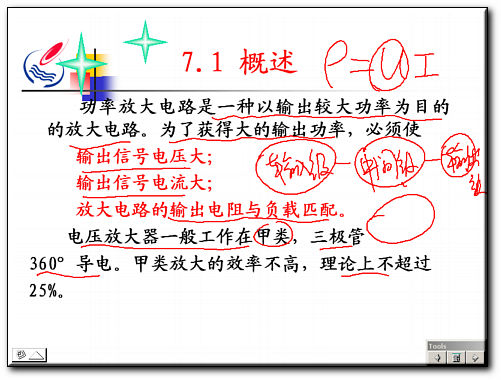 7.1 概述
P=UI
功率放大电路是一种以输出较大功率为目的
的放大电路。为了获得大的输出功率，必须使
输出信号电压大；
输出信号电流大；
放大电路的输出电阻与负载匹配。
输入级
中间级
输出级
电压放大器一般工作在甲类，三极管
360° 导电。甲类放大的效率不高，理论上不超过
25%。
Tools